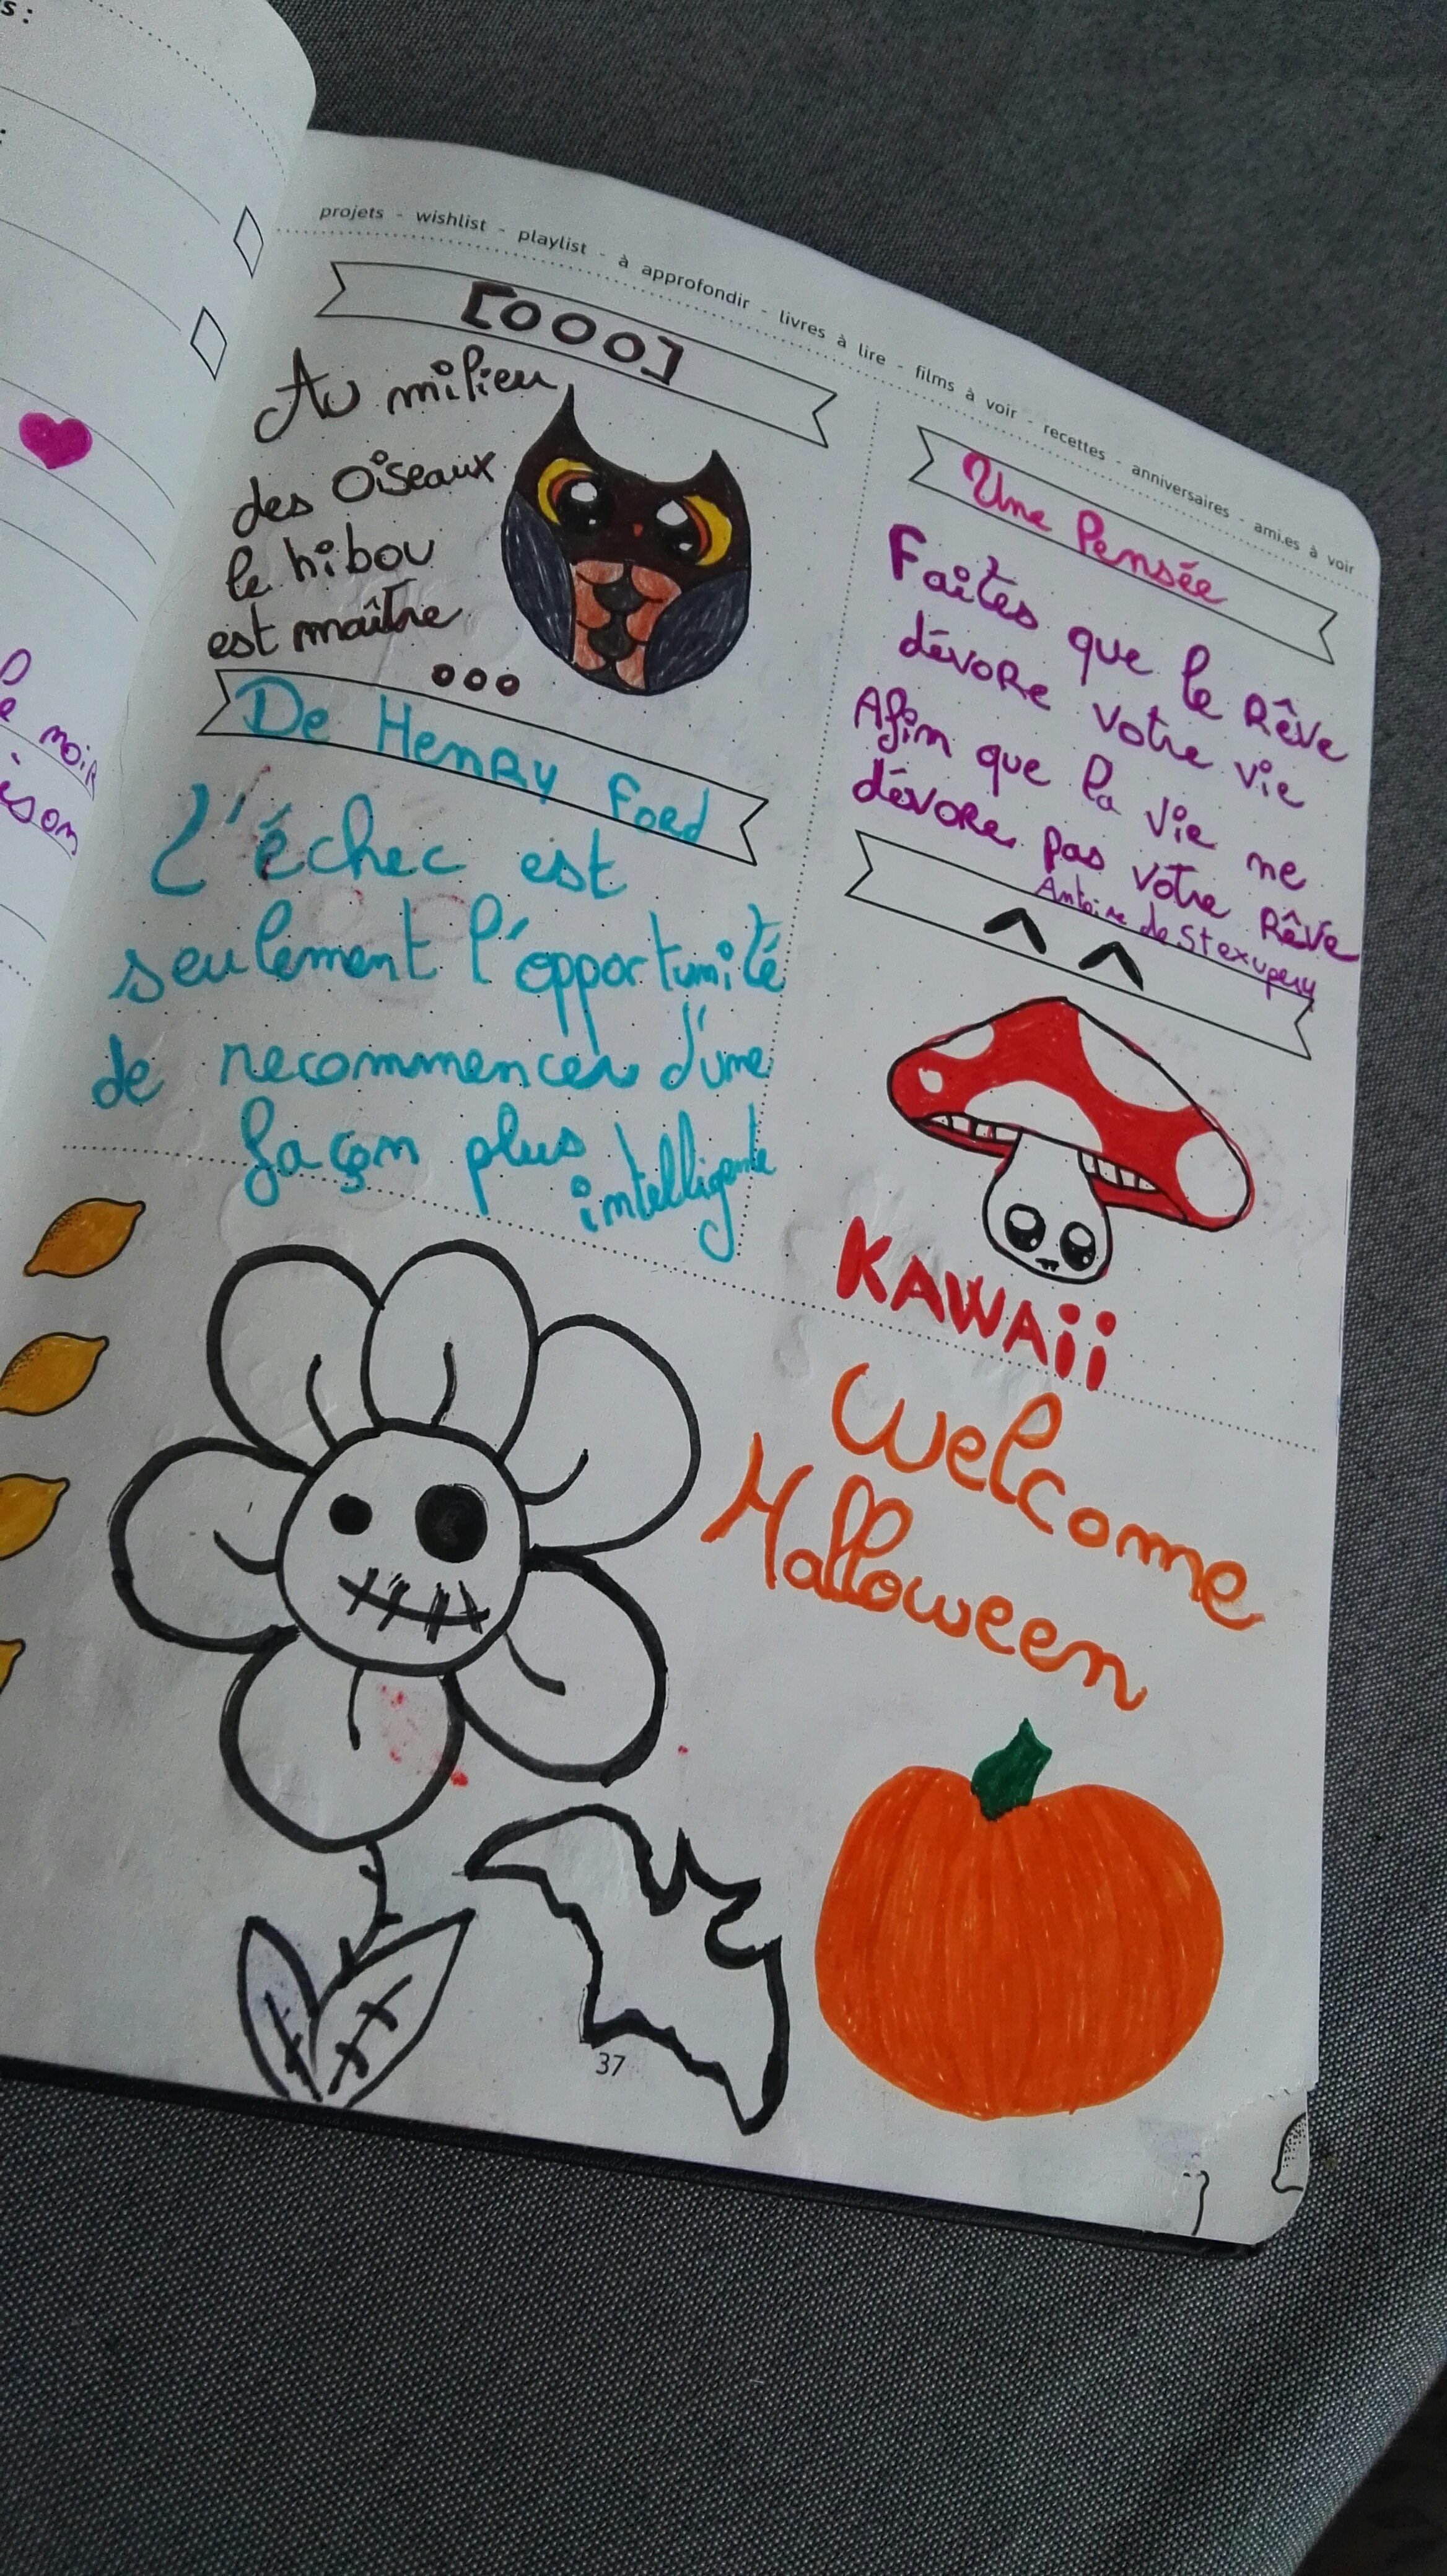 s :
:
noir
ison
projets - wishlist - playlist - à approfondir - livres à lire - films à voir - recettes - anniversaires - ami.es à voir
[OOO]
Au milieu
des Oiseaux
le hibou
est maître
ooo
De Henry Ford
L'échec est
seulement l'opportunité
de recommencer d'une
façon plus
intelligente
Une Pensée
Faites que le Rêve
dévore votre vie
Afin que la vie ne
dévore pas votre Rêve
Antoine de St exupery
^ ^
KAWAii
Welcome
Halloween
37